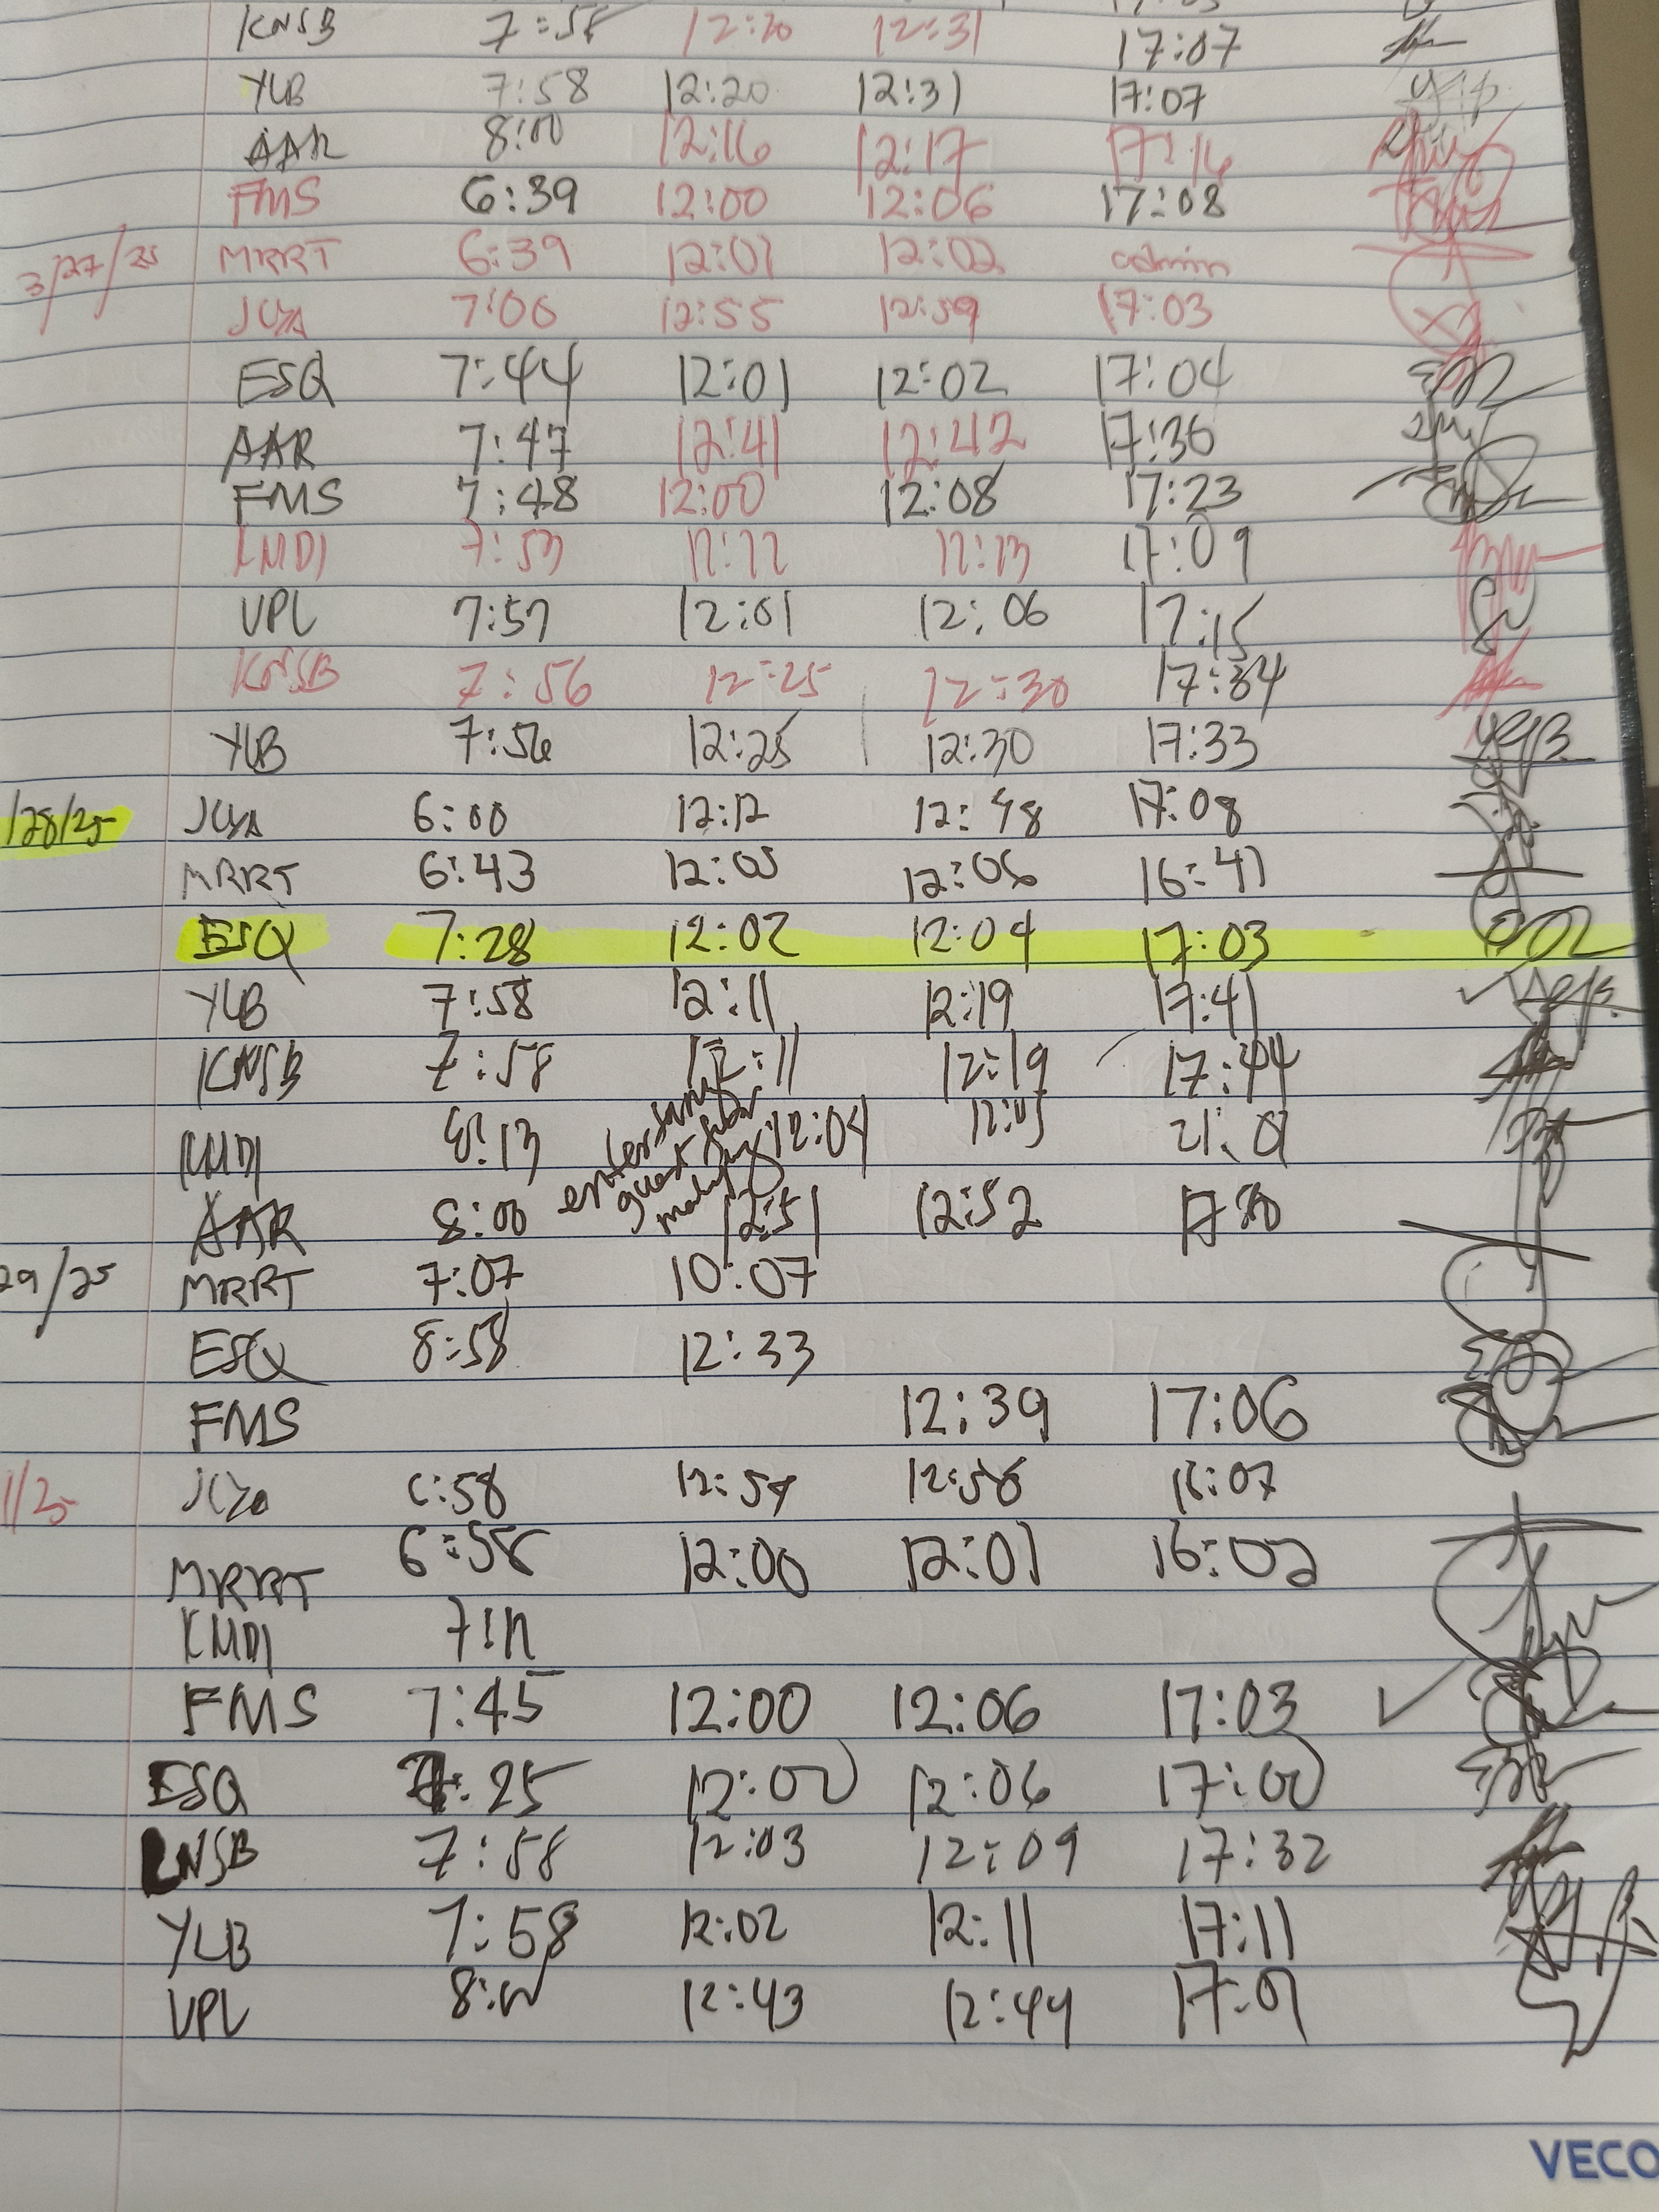 KNSB 7:58 12:20 12:31 17:07
YLB 7:58 12:20 12:31 17:07
AAR 8:00 12:16 12:17 17:16
FMS 6:39 12:00 12:06 17:08
3/27/25 MRRT 6:39 12:01 12:02 admin
JCYA 7:00 12:55 12:59 17:03
ESQ 7:44 12:01 12:02 17:04
AAR 7:47 12:41 12:42 17:36
FMS 7:48 12:00 12:08 17:23
KMDI 7:53 12:12 12:13 17:09
VPL 7:57 12:01 12:06 17:15
KNSB 7:56 12:25 12:30 17:34
YLB 7:56 12:25 12:30 17:33
/28/25 JCYA 6:00 12:12 12:48 17:08
MRRT 6:43 12:05 12:06 16:41
ESQ 7:28 12:02 12:04 17:03
YLB 7:58 12:11 12:19 17:41
KNSB 7:58 12:11 12:19 17:44
KMDI 8:13 12:04 12:05
AAR 8:00 12:51 12:52
29/25 MRRT 7:07 10:07
ESQ 8:58 12:33
FMS 12:39 17:06
1/25 JCYA 6:58 12:54 12:56 16:07
MRRT 6:58 12:00 12:01 16:02
KMDI
FMS 7:45 12:00 12:06 17:03
ESQ 7:25 12:00 12:06 17:00
KNSB 7:58 12:03 12:09 17:32
YLB 7:58 12:02 12:11 17:11
VPL 8:00 12:43 12:44 17:01
VECO